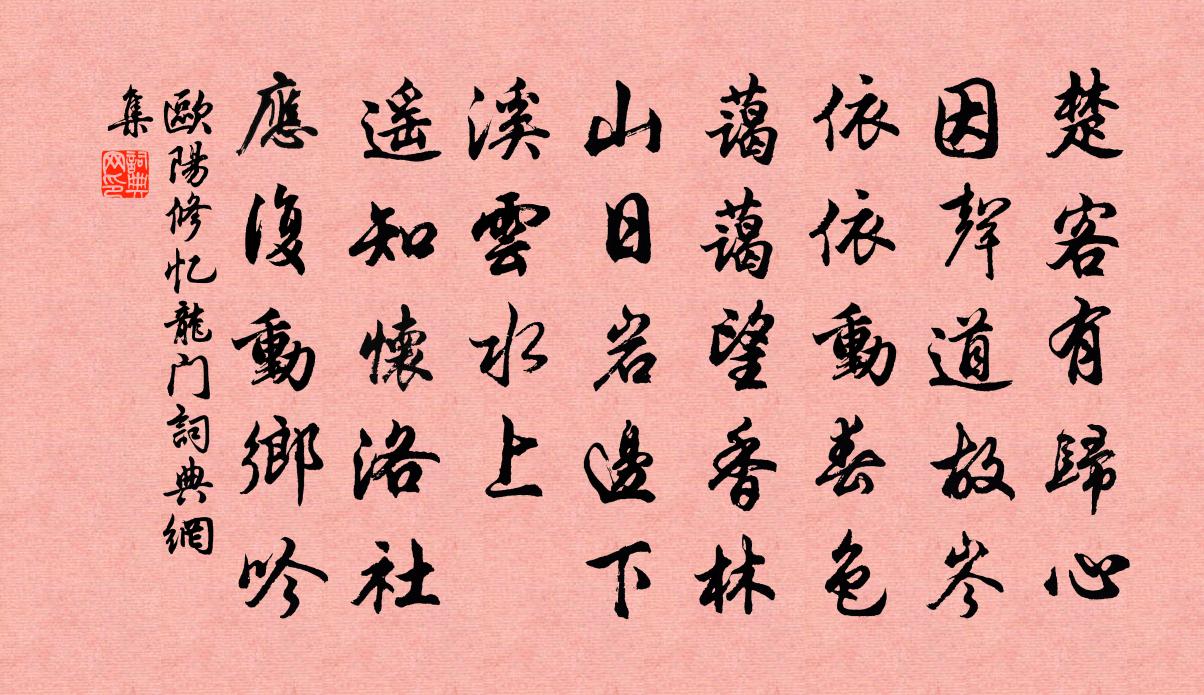 楚客有歸心
因聲道故岑
依依動春色
藹藹望香林
山日岩邊下
溪雲水上
遥知懷洛社
應復動鄉吟
歐陽修忆龍门詞典網
集
詞典
网印